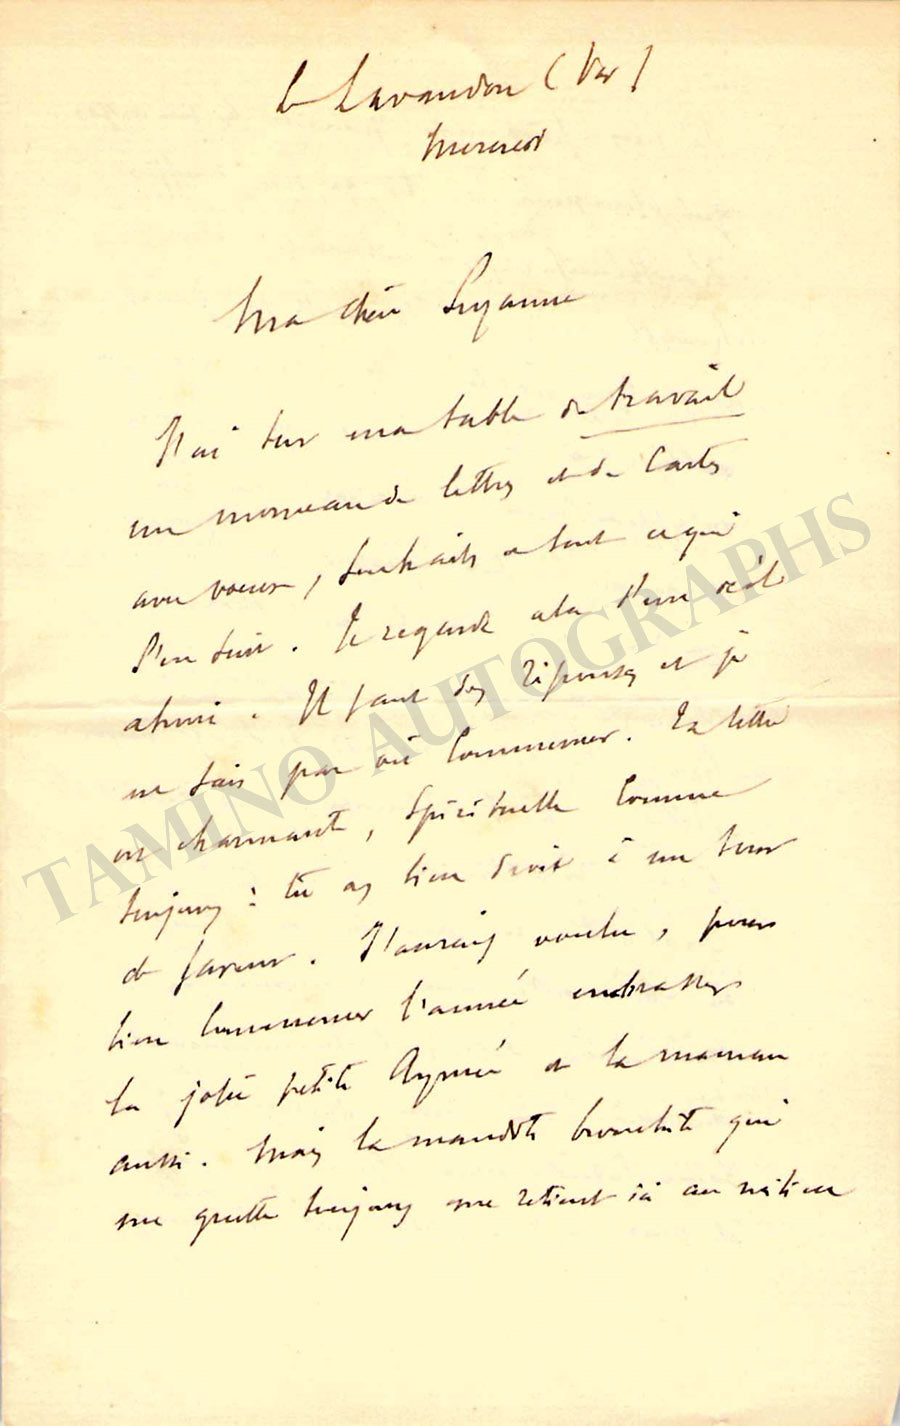 le Lavandou (Var)
Mercredi
Ma chère Suzanne
J'ai sur ma table de travail
un monceau de lettres et de cartes
avec vœux, souhaits et tout ce qui
s'en suit. Je regarde cela d'un œil
ahuri. Il faut des réponses et je
ne sais par où commencer. Ta lettre
est charmante, spirituelle comme
toujours : tu as bien droit à un tour
de faveur. J'aurais voulu, pour
bien commencer l'année embrasser
la jolie petite Aymée et la maman
aussi. Mais la maudite bronchite qui
me guette toujours me retient ici au milieu
TAMINO AUTOGRAPHS